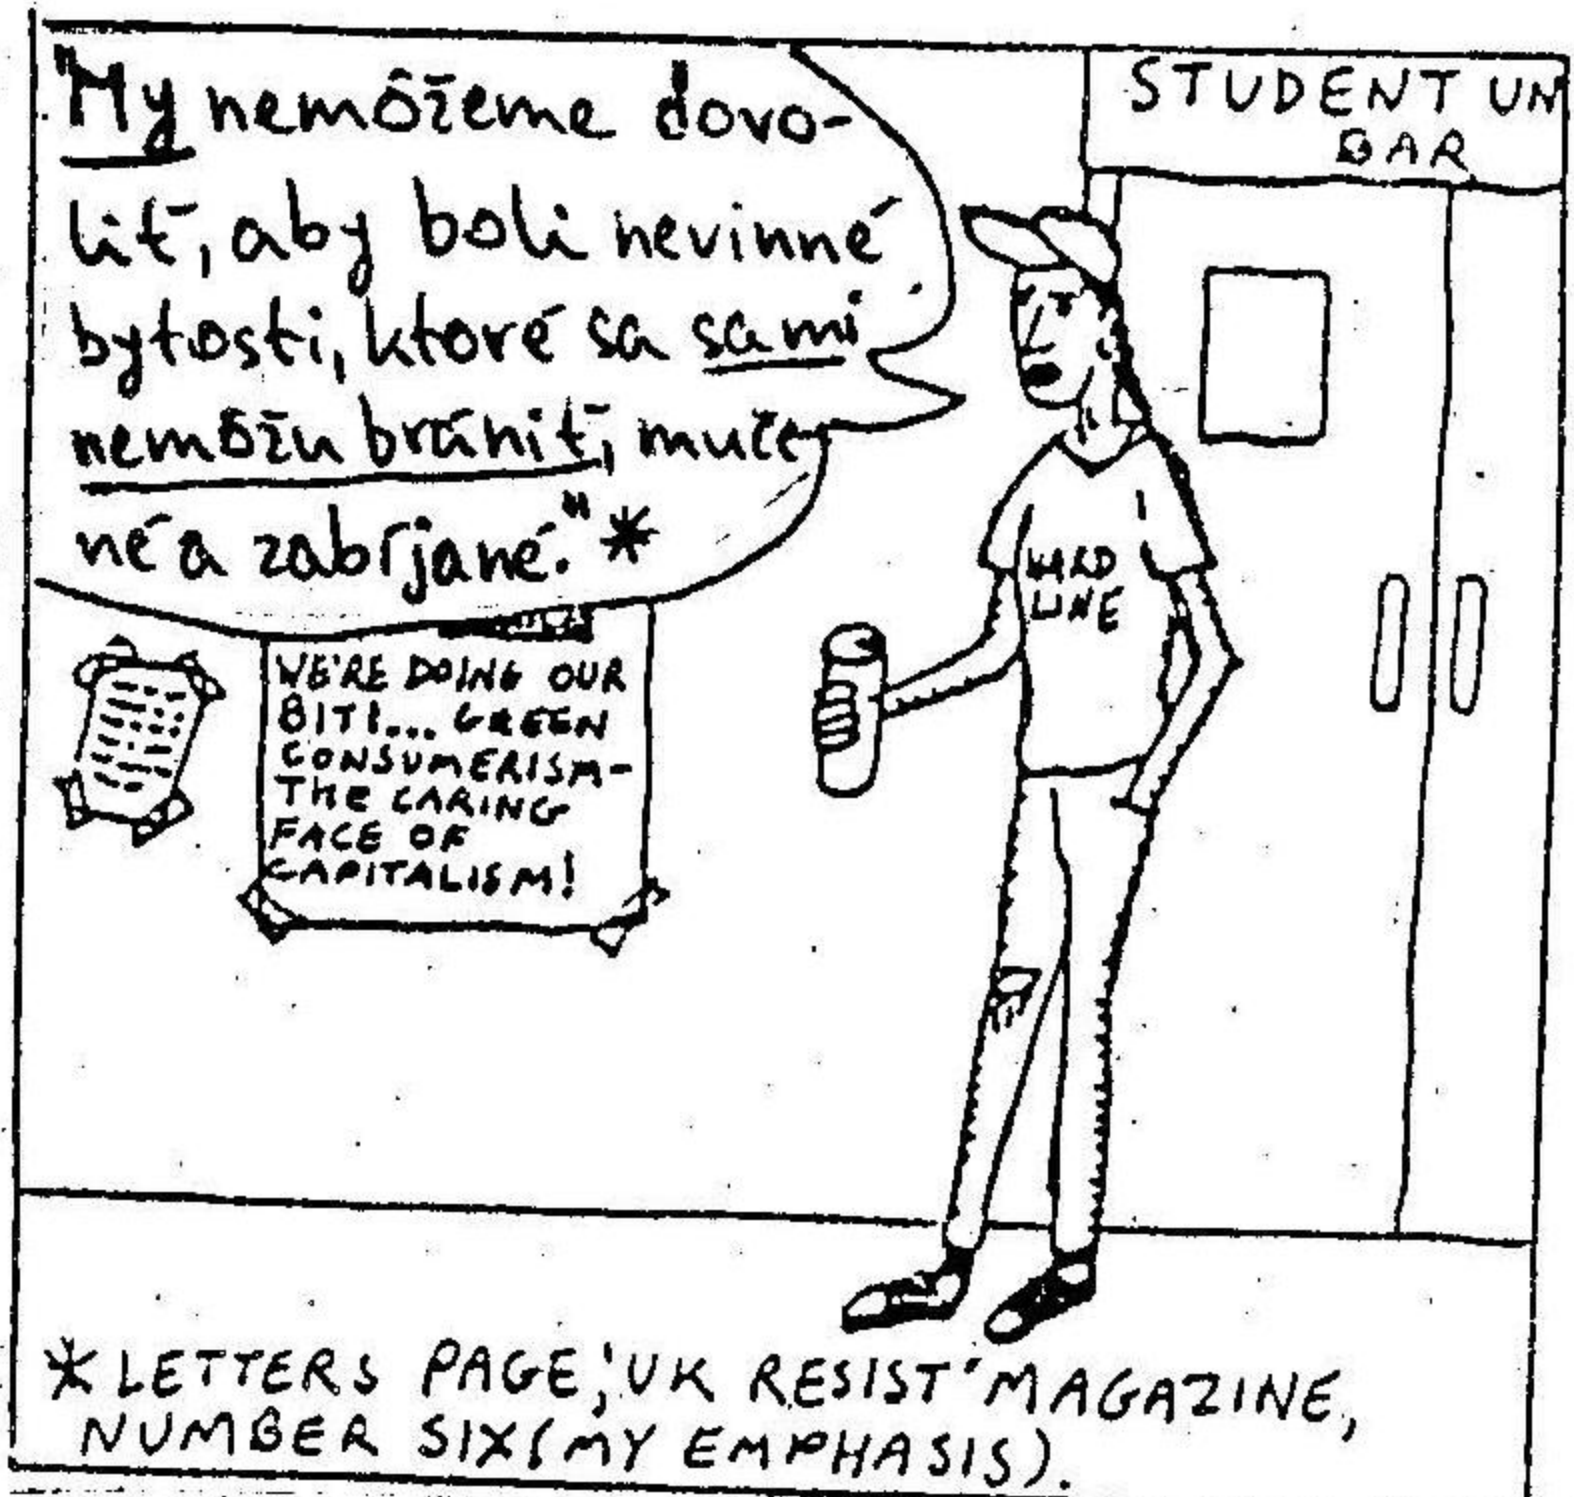 "My nemôžeme dovo-
liť, aby boli nevinné
bytosti, ktoré sa sami
nemôžu brániť, muče-
né a zabíjané."*
STUDENT UN
BAR
HARD
LINE
WE'RE DOING OUR
BIT!... GREEN
CONSUMERISM-
THE CARING
FACE OF
CAPITALISM!
* LETTERS PAGE, 'UK RESIST' MAGAZINE,
NUMBER SIX (MY EMPHASIS).